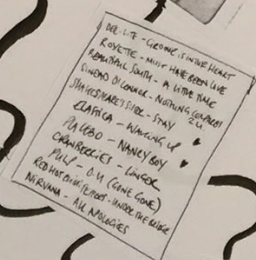 DEE-LITE - GROOVE IS IN THE HEART
ROXETTE - MUST HAVE BEEN LOVE
BEAUTIFUL SOUTH - A LITTLE TIME
SINEAD O'CONNOR - NOTHING COMPARES
2U
SHAKESPEARS SISTER - STAY
ELASTICA - WAKING UP
PLACEBO - NANCY BOY
CRANBERRIES - LINGER
PULP - O.U (GONE GONE)
RED HOT CHILI PEPPERS - UNDER THE BRIDGE
NIRVANA - ALL APOLOGIES